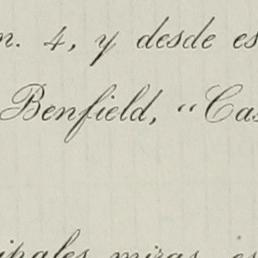 m. 4, y desde es
Benfield, “Cas
ipales miras, es